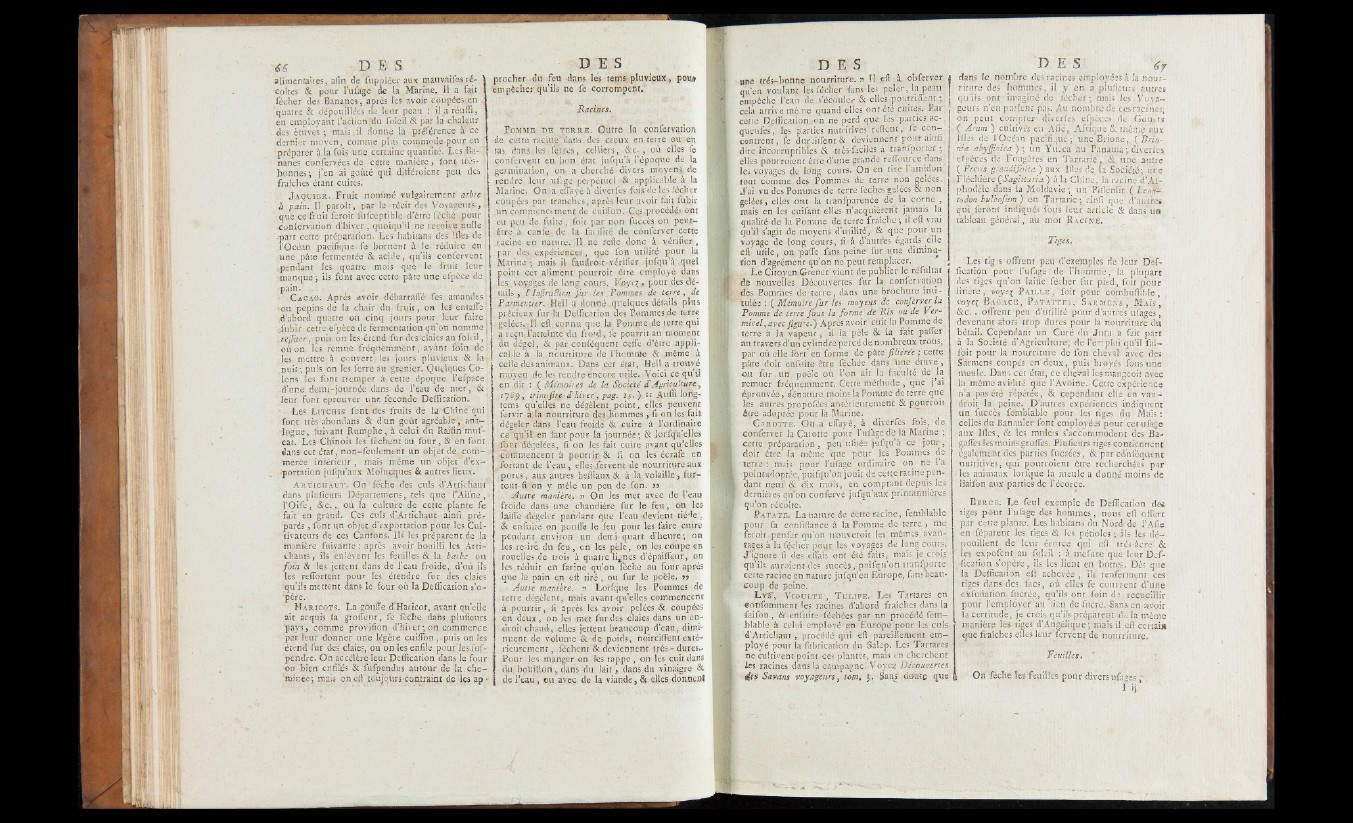 66 DES
alimentaires, afin de suppléer aux mauvaises ré-
coltes & pour l'usage de la Marine. Il a fait
sécher des Bananes, après les avoir coupées en
quatre & dépouillées de leur peau : il a réussi,
en employant l'action du soleil & par la chaleur
des étuves ; mais il donne la préférence à ce
dernier moyen, comme plus commode pour en
préparer à la fois une certaine quantité. Les Ba-
nanes conservées de cette manière, sont très-
bonnes ; j'en ai goûté qui différoient peu des
fraîches étant cuites.
JAQUIER. Fruit nommé vulgairement arbre
à pain. Il paroît, par le récit des Voyageurs,
que ce fruit seroit susceptible d'être séché pour
conservation d'hiver, quoiqu'il ne reçoive nulle
part cette préparation. Les habitans des Isles de
l'Océan pacifique se bornent à le réduire en
une pâte fermentée & acide, qu'ils conservent
pendant les quatre mois que le fruit leur
manque ; ils font avec cette pâte une espèce de
pain.
CACAO. Après avoir débarrassé ses amandes
ou pepins de la chair du fruit, on les entasse
d'abord quatre ou cinq jours pour leur faire
subir cette espèce de fermentation qu'on nomme
ressuer, puis on les étend sur des claies au soleil,
où on les remue fréquemment, avant soin de
les mettre à couvert les jours pluvieux & la
nuit ; puis on les serre au grenier. Quelques Co-
lons les font tremper à cette époque l'espace
d'une demi-journée dans de l'eau de mer, &
leur font éprouver une seconde Dessication.
LES LITCHIS sont des fruits de la Chine qui
sont très abondans & d'un goût agréable, ana-
logue, suivant Rumphe, à celui du Raisin mus-
cat. Les Chinois les sèchent au four, & en font
dans cet état, non-seulement un objet de com-
merce intérieur, mais même un objet d'ex-
portation jusqu'aux Moluques & autres lieux.
ARTICHAUT. On sèche des culs d'Artichaut
dans plusieurs Départemens, tels que l'Aisne,
l'Oise, &c., où la culture de cette plante se
fait en grand. Ces culs d'Artichaut ainsi pré-
parés, sont un objet d'exportation pour les Cul-
tivateurs de ces Cantons. Ils les préparent de la
manière suivante : après avoir bouilli les Arti-
chauts, ils enlèvent les feuilles & la barbe ou
foin & les jettent dans de l'eau froide, d'où ils
les ressortent pour les étendre sur des claies
qu'ils mettent dans le four où la Dessication s'o-
père.
HARICOTS. La gousse d'Haricot, avant qu'elle
ait acquis sa grosseur, se sèche dans plusieurs
pays, comme provision d'hiver ; on commence
par leur donner une légère cuisson, puis on les
étend sur des claies, ou on les enfile pour les sus-
pendre. On accélère leur Dessication dans le four
ou bien enfilés & suspendus autour de la che-
minée ; mais on est toujours contraint de les ap-
DES
procher du feu dans les tems pluvieux, pour
empêcher qu'ils ne se corrompent.
Racines.
POMME DE TERRE. Outre la conservation
de cette racine dans des creux en terre ou en
tas dans les serres, celliers, &c., où elles se
conservent en bon état jusqu'à l'époque de la
germination, on a cherché divers moyens de
rendre leur usage perpétuel & applicable à la
Marine. On a essayé à diverses fois de les sécher
coupées par tranches, après leur avoir fait subir
un commencement de cuisson. Ces procédés ont
eu peu de suite, soit par non succès ou peut-
être à cause de la facilité de conserver cette
racine en nature. Il ne reste donc à vérifier,
par des expériences, que son utilité pour la
Marine ; mais il faudroit vérifier jusqu'à quel
point cet aliment pourroit être employé dans
les voyages de long cours. Voyez, pour des dé-
tails, l'Instruction sur les Pommes de terre, de
Parmentier. Hell a donné quelques détails plus
précieux sur la Dessication des Pommes de terre
gelées. Il est connu que la Pomme de terre qui
a reçu l'atteinte du froid, se pourrit au moment
du dégel, & par conséquent cesse d'être appli-
cable à la nourriture de l'homme & même à
celle des animaux. Dans cet état, Hell a trouvé
moyen de les rendre encore utile. Voici ce qu'il
en dit : (Mémoires de la Société d'Agriculture,
1789, trimestre d'hiver, pag. 15.) « Aussi long-
tems qu'elles ne dégèlent point, elles peuvent
servir à la nourriture des hommes, si on les fait
dégeler dans l'eau froide & cuire à l'ordinaire
ce qu'il en faut pour la journée ; & lorsqu'elles
sont dégelées, si on les fait cuire avant qu'elles
commencent à pourrir & si on les écrase en
sortant de l'eau, elles servent de nourriture aux
porcs, aux autres bestiaux & à la volaille, sur-
tout si on y mêle un peu de son. »
Autre manière. « On les met avec de l'eau
froide dans une chaudière sur le feu, on les
laisse dégeler pendant que l'eau devient tiède,
& ensuite on pousse le feu pour les faire cuire
pendant environ un demi-quart d'heure ; on
les retire du feu, on les pèle, on les coupe en
rouelles de trois à quatre lignes d'épaisseur, on
les réduit en farine qu'on sèche au four après
que le pain en est tiré, ou sur le poêle. »
Autre manière. « Lorsque les Pommes de
terre dégèlent, mais avant qu'elles commencent
à pourrir, si après les avoir pelées & coupées
en deux, on les met sur des claies dans un en-
droit chaud, elles jettent beaucoup d'eau, dimi-
nuent de volume & de poids, noircissent exté-
rieurement, sèchent & deviennent très-dures.
Pour les manger on les rappe, on les cuit dans
du bouillon, dans du lait, dans du vinaigre &
de l'eau, ou avec de la viande, & elles donnent
DES
une très-bonne nourriture. » Il est à observer
qu'en voulant les sécher sans les peler, la peau
empêche l'eau de s'écouler & elles pourrissent ;
cela arrive même quand elles ont été cuites. Par
cette Dessication on ne perd que les parties ac-
queuses, les parties nutritives restent, se con-
centrent, se durcissent & deviennent pour ainsi
dire incorruptibles & très-faciles à transporter ;
elles pourroient être d'une grande ressource dans
les voyages de long cours. On en tire l'amidon
tout comme des Pommes de terre non gelées.
J'ai vu des Pommes de terre sèches gelées & non
gelées, elles ont la transparence de la corne,
mais en les cuisant elles n'acquièrent jamais la
qualité de la Pomme de terre fraîche ; il est vrai
qu'il s'agit de moyens d'utilité, & que pour un
voyage de long cours, si à d'autres égards elle
est utile, on passe sans peine sur une diminu-
tion d'agrément qu'on ne peut remplacer.
Le Citoyen Grenet vient de publier le résultat
de nouvelles Découvertes sur la conservation
des Pommes de terre, dans une brochure inti-
tulée : (Mémoire sur les moyens de conserver la
Pomme de terre sous la forme de Ris ou de Ver-
micel, avec figure.) Après avoir cuit la Pomme de
terre à la vapeur, il la pèle & la fait passer
au travers d'un cylindre percé de nombreux trous,
par où elle sort en forme de pâte filtrée ; cette
pâte doit ensuite être séchée dans une étuve,
ou sur un poële où l'on ait la faculté de la
remuer fréquemment. Cette méthode, que j'ai
éprouvée, dénature moins la Pomme de terre que
les autres proposées antérieurement & pourroit
être adoptée pour la Marine.
CAROTTE. On a essayé, à diverses fois, de
conserver la Carotte pour l'usage de la Marine :
cette préparation, peu usitée jusqu'à ce jour,
doit être la même que pour les Pommes de
terre : mais pour l'usage ordinaire on ne l'a
point adoptée, puisqu'on jouit de cette racine pen-
dant neuf & dix mois, en comptant depuis les
dernières qu'on conserve jusqu'aux printannières
qu'on récolte.
PATATE. La nature de cette racine, semblable
pour sa consistance à la Pomme de terre, me
feroit penser qu'on trouveroit les mêmes avan-
tages à la sécher pour les voyages de long cours.
J'ignore si des essais ont été faits, mais je crois
qu'ils auroient des succès, puisqu'on transporte
cette racine en nature jusqu'en Europe, sans beau-
coup de peine.
LYS, VIOULTE, TULIPE. Les Tartares en
consomment les racines d'abord fraîches dans la
saison, & ensuite séchées par un procédé sem-
blable à celui employé en Europe pour les culs
d'Artichaut, procédé qui est pareillement em-
ployé pour la fabrication du Salep. Les Tartares
ne cultivent point ces plantes, mais en cherchent
les racines dans la campagne. Voyez Découvertes
des Savans voyageurs, tom. 3. Sans doute que
DES 67
dans le nombre des racines employées à la nour-
riture des hommes, il y en a plusieurs autres
qu'ils ont imaginé de sécher ; mais les Voya-
geurs n'en parlent pas. Au nombre de ces racines,
on peut compter diverses espèces de Gouets
(Arum) cultivés en Asie, Afrique & même aux
Isles de l'Océan pacifique ; une Brione, (Brio-
nia abyssinica) ; un Yucca au Panama ; diverses
espèces de Fougères en Tartarie, & une autre
(Pteris grandifolia) aux Isles de la Société ; une
Fléchière (Sagittaria) à la Chine, la racine d'As-
phodèle dans la Moldavie ; un Pissenlit (Leon-
todon bulbosum) en Tartarie ; ainsi que d'autres
qui seront indiqués sous leur article & dans un
tableau général, au mot RACINE.
Tiges.
Les tiges offrent peu d'exemples de leur Des-
sication pour l'usage de l'homme, la plupart
des tiges qu'on laisse sécher sur pied, soit pour
litière, voyez PAILLE, soit pour combustible,
voyez BAGACE, PATATTES, SARMENS, MAÏS,
&c. : offrent peu d'utilité pour d'autres usages,
devenant alors trop dures pour la nourriture du
bétail. Cependant un Curé du Jura a fait part
à la Société d'Agriculture, de l'emploi qu'il fai-
soit pour la nourriture de son cheval avec des
Sarmens coupés en deux, puis broyés sous une
meule. Dans cet état, ce cheval les mangeoit avec
la même avidité que l'Avoine. Cette expérience
n'a pas été répétée, & cependant elle en vau-
droit la peine. D'autres expériences indiquent
un succès semblable pour les tiges du Maïs :
celles du Bananier sont employées pour cet usage
aux Isles, & les mulets s'accommodent des Ba-
gasses les moins grosses. Plusieurs tiges contiennent
également des parties sucrées, & par conséquent
nutritives, qui pourroient être recherchées par
les animaux lorsque la meule a donné moins de
liaison aux parties de l'écorce.
BERCE. Le seul exemple de Dessication des
tiges pour l'usage des hommes, nous est offert
par cette plante. Les habitans du Nord de l'Asie
en séparent les tiges & les pétioles ; ils les dé-
pouillent de leur écorce qui est très-âcre &
les exposent au soleil : à mesure que leur Des-
sication s'opère, ils les lient en bottes. Dès que
la Dessication est achevée, ils renferment ces
tiges dans des sacs, où elles se couvrent d'une
exsudation sucrée, qu'ils ont soin de recueillir
pour l'employer au lieu de sucre. Sans en avoir
la certitude, je crois qu'ils préparent de la même
manière les tiges d'Angélique ; mais il est certain
que fraîches elles leur servent de nourriture.
Feuilles.
On sèche les feuilles pour divers usages,
I ij